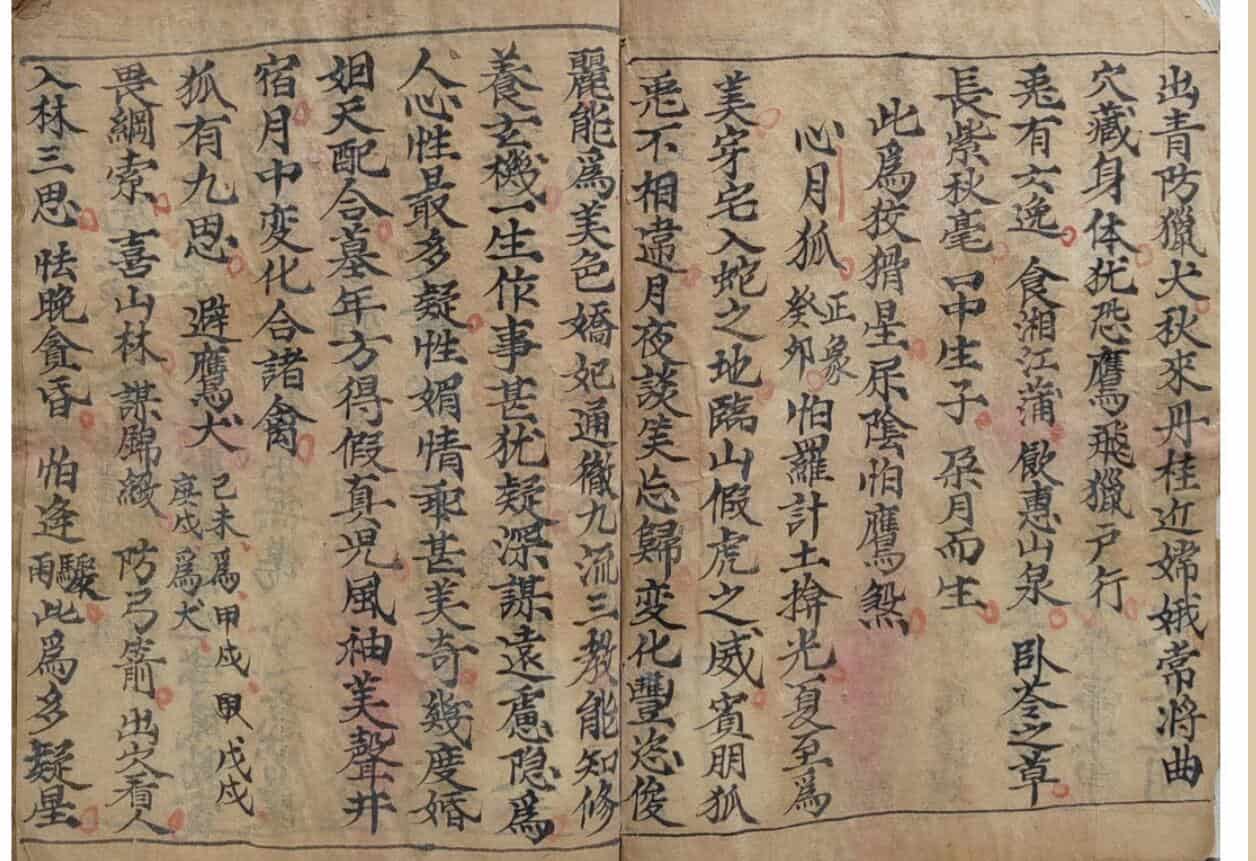 出青防獵犬秋來丹桂近嫦娥常將曲
穴藏身体犹恐鷹飛獵户行
兎有六逸 食湘江蒲 飲惠山泉 卧苓之草
長紫秋毫 口中生子 朶月而生
此爲狡猾星 尿陰怕鷹煞
心月狐 正象 癸卯 怕羅計土揜光夏至爲
美穿宅入蛇之地臨山假虎之威賓朋狐
兎不相違月夜談笑忘歸变化豐恣俊
麗能爲美色嬌妃通徹九流三教能知修
養玄機一生作事甚犹疑深謀遠慮隐爲
人心性最多疑性媚情乖甚美奇幾度婚
姻天配合墓年方得假真児風袖美聲井
宿月中变化合諸禽
狐有九思 避鷹犬 己未爲甲戌 甲戊戌 庚戌爲犬
畏綱索 喜山林 謀錦綴 防弓箭 出穴看人
入林三思 怯晚貪昏 怕逢驟雨 此爲多疑星